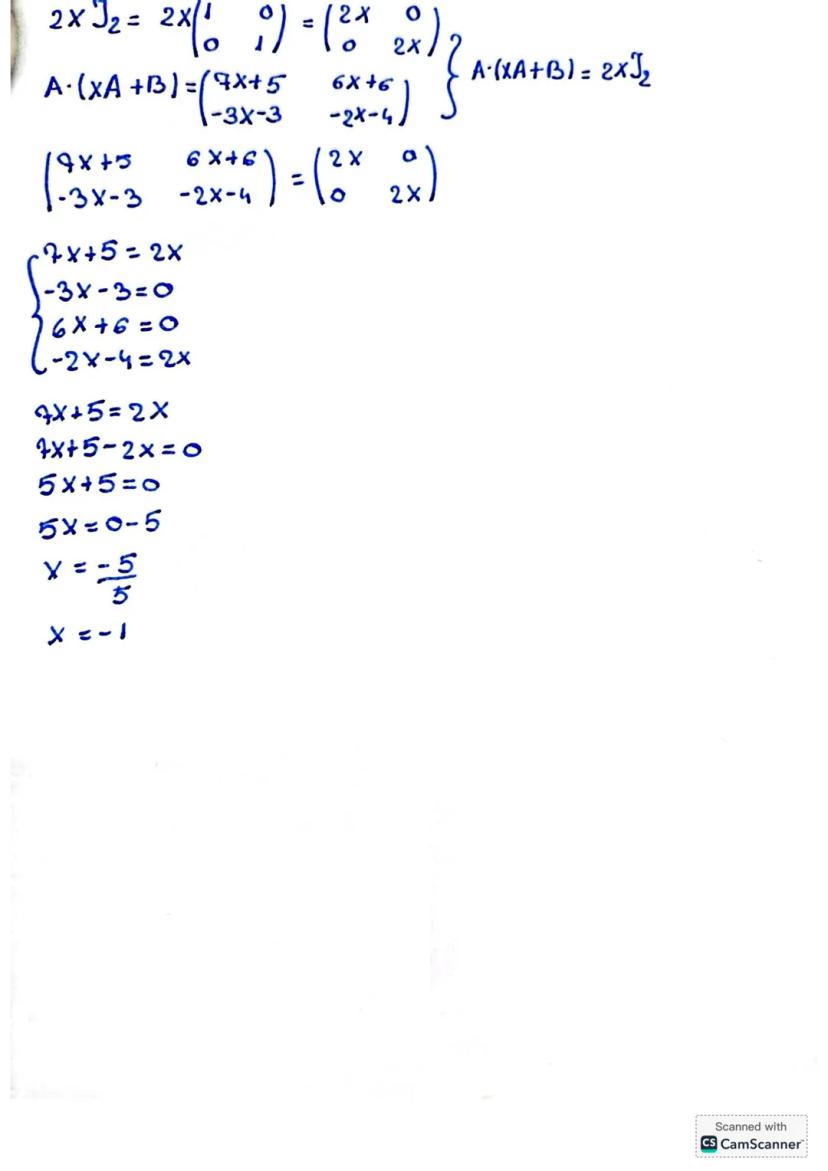 2x I₂ = 2x(1 0 / 0 1) = (2x 0 / 0 2x)
A·(xA+B) = (7x+5 6x+6 / -3x-3 -2x-4) } A·(xA+B) = 2xI₂
(7x+5 6x+6 / -3x-3 -2x-4) = (2x 0 / 0 2x)
{ 7x+5 = 2x
-3x-3 = 0
6x+6 = 0
-2x-4 = 2x
7x+5 = 2x
7x+5-2x = 0
5x+5 = 0
5x = 0-5
x = -5/5
x = -1
Scanned with
CS CamScanner